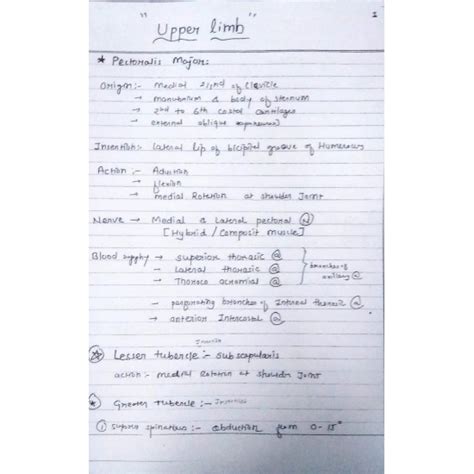 " Upper limb " 1
* Pectoralis Major:
Origin:- Medial 2/3rd of Clavicle
→ manubrium & body of sternum
→ 2nd to 6th costal cartilages
→ external oblique
Insertion: lateral lip of bicipital groove of Humerus
Action:- Aduction
→ flexion
→ medial Rotation at shoulder Joint
Nerve → Medial & Lateral pectoral (N)
[Hybrid / Composit muscle]
Blood supply → superior thorasic @
→ lateral thorasic @
→ Thoraco acromial @
branches of axillary @
→ perforating branches of Internal thorasic @
→ anterior Intercostal @
Insertion
* Lesser tubercle:- subscapularis
action:- medial Rotation at shoulder Joint
* Greater Tubercle:- Insertion
① supra spinatus:- abduction from 0-15°